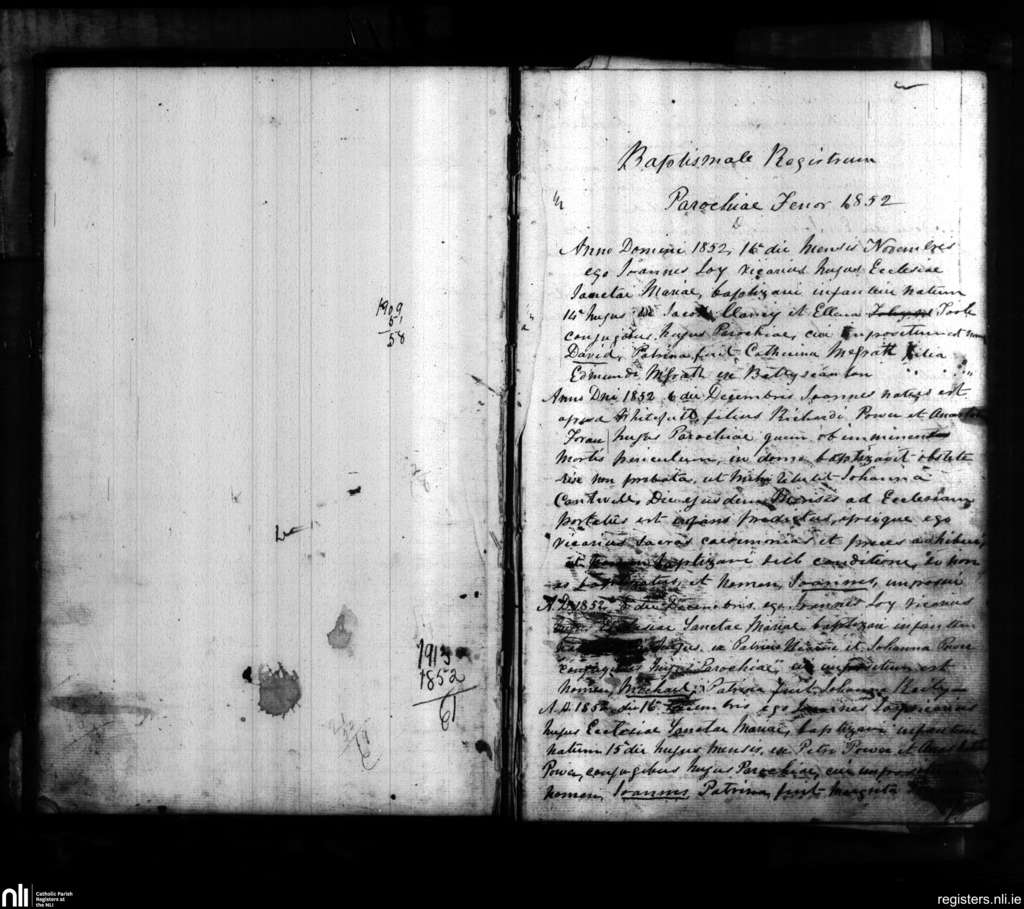 1909
51
58
1913
1852
61
Baptismale Registrum
Parochiae Fenor 1852
Anno Domini 1852, 16 die Mensis Novembris
ego Joannes Loy Vicarius hujus Ecclesiae
Sanctae Mariae, baptizavi infantem natum
14 hujus Jacobo Clancy et Ellena Toole
conjugibus hujus Parochiae, cui impositum est nomen
David, Patrina fuit Catherina McGrath filia
Edmundi McGrath ex Ballyscanlon
Anno Dni 1852 6 die Decembris Joannes natus est
apud filius Richardi Power et
Foran hujus Parochiae quem ob imminens
mortis periculum, in domo baptizavit obstetrix
non probata, ut mihi retulit Johanna
Cantwell, Die ejusdem Mensis ad Ecclesiam
portatus est infans predictus, ipsique ego
Vicarius sacras caeremonias et preces adhibui
et baptizavi sub conditione, si non
es baptizatus, et nomen, Joannes, imposui
A.D. 1852 die Decembris ego Joannes Loy Vicarius
Ecclesiae Sanctae Mariae baptizavi infantem
hujus, ex Patricio et Johanna Power
conjugibus hujus Parochiae, cui impositum est
nomen, Michael, Patrina fuit Johanna
A.D. 1852 die 16 Decembris ego Joannes Loy Vicarius
hujus Ecclesiae Sanctae Mariae, baptizavi infantem
natum 15 die hujus Mensis, ex Petro Power et
Power, conjugibus hujus Parochiae, cui impositum
nomen, Joannes, Patrina, fuit Margarita
nli
Catholic Parish
Registers at
the NLI
registers.nli.ie